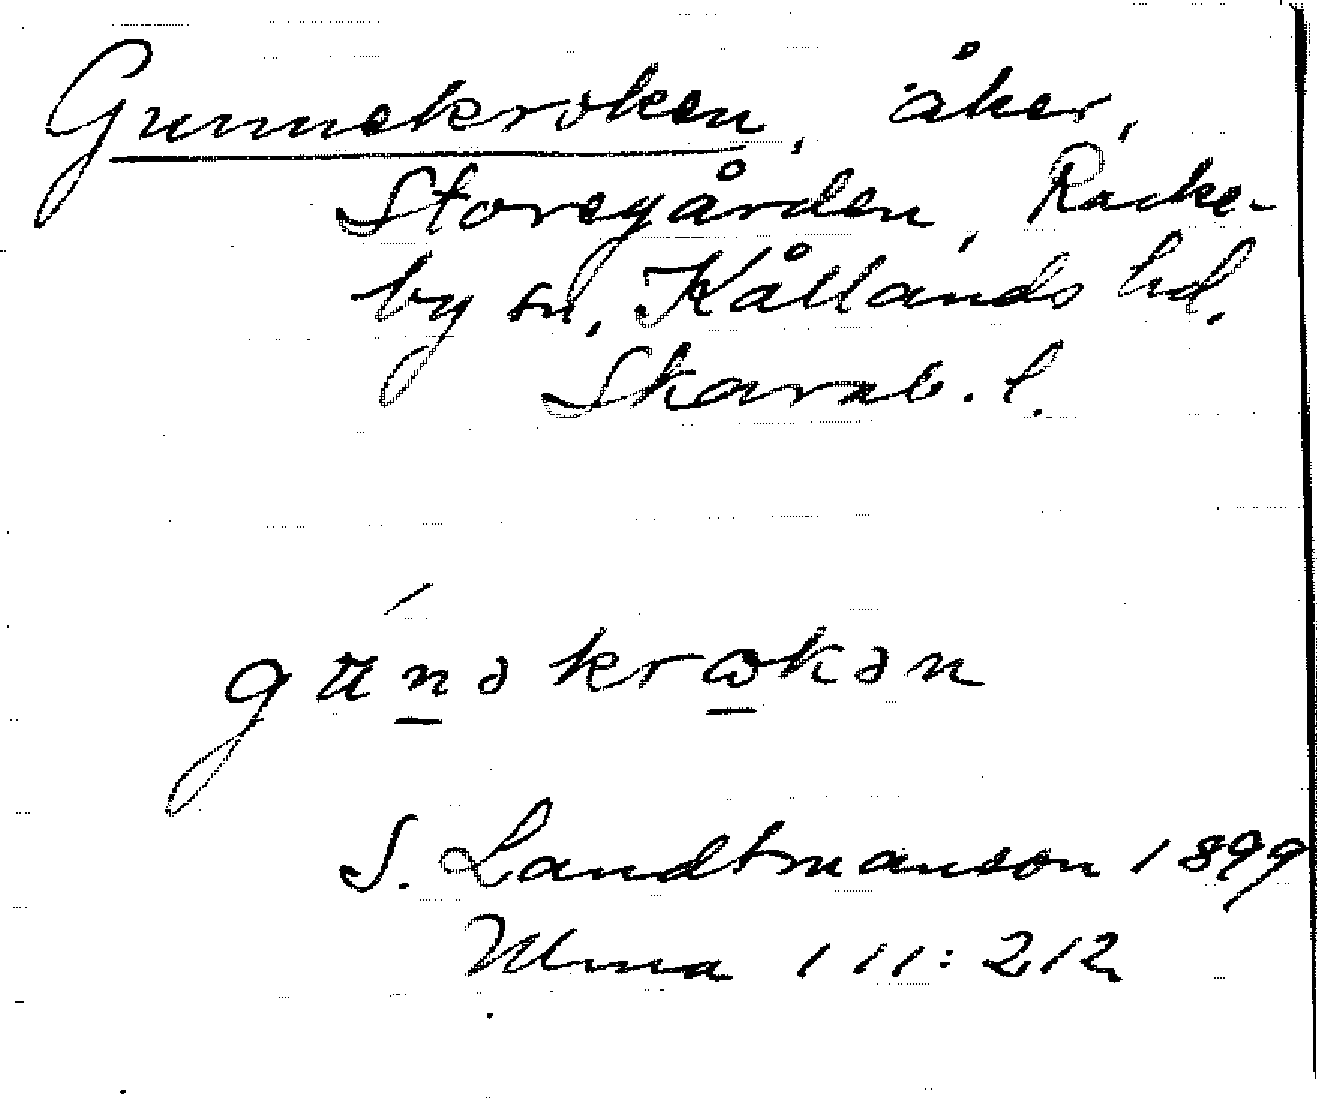 Gunnekroken, åker,
Storegården, Racke-
by sn, Kållands hd,
Skarab. l.
gu̇nəkrωkən
S. Landtmanson 1899
Ulma 111:212